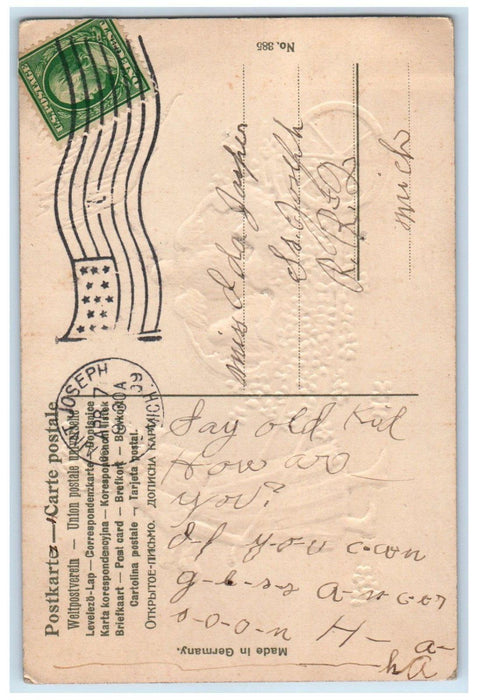 Postkarte — Carte postale
Weltpostverein — Union postale universelle
Levelező-Lap — Correspondenzkarte — Dopisnice
Karta korespondencyjna — Korespondenční lístek
Briefkaart — Post card — Brefkort — Brevkort
Cartolina postale — Tarjeta postal.
ОТКРЫТОЕ-ПИСЬМО. ДОПИСНА КАРТКА
No. 385
U.S. POSTAGE
ST. JOSEPH
APR 7
00A
09
MICH.
Miss Ida
St. Joseph
R.R. 2
Mich
Say old Kid
How are
you?
If you can
g-e-s-s A-n-c-er
s-o-o-n H-
a-
ha
Made in Germany.